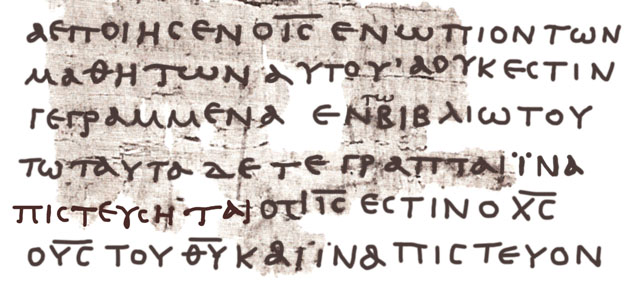 ΑΕΠΟΙΗϹΕΝ Ο Ι̅Ϲ̅ ΕΝΩΠΙΟΝ ΤΩΝ
ΜΑΘΗΤΩΝ ΑΥΤΟΥ' ΑΟΥΚ ΕϹΤΙΝ
ΓΕΓΡΑΜΜΕΝΑ ΕΝ ΤΩ ΒΙΒΛΙΩ ΤΟΥ
ΤΩ ΤΑΥΤΑ ΔΕ ΤΕΓΡΑΠΤΑΙ ΪΝΑ
ΠΙϹΤΕΥϹΗΤΑΙ ΟΤΙ Ι̅Ϲ̅ ΕϹΤΙΝ Ο Χ̅Ϲ̅
Ο Υ̅Ϲ̅ ΤΟΥ Θ̅Υ̅ ΚΑΙ ΪΝΑ ΠΙϹΤΕΥΟΝ